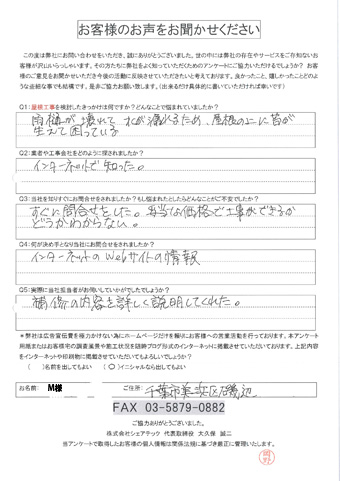 お客様のお声をお聞かせください
この度は弊社にお問い合わせをいただき、誠にありがとうございました。世の中には弊社の存在やサービスをご存知ないお
客様が沢山いらっしゃいます。その方たちに弊社をよく知っていただくためのアンケートにご協力いただけるでしょうか？お客
様のご意見をお聞かせいただき今後の活動に反映させていただきたいと考えております。良かったこと、嬉しかったことどのよ
うな些細な事でも結構です。是非ご協力お願い致します。(出来るだけ具体的に書いていただければ幸いです)
Q1:屋根工事を検討したきっかけは何ですか？どんなことで悩まれていましたか？
雨樋が壊れて 水が漏れるため、屋根の上に苔が
生えて困っている
Q2:業者や工事会社をどのように探されましたか？
インターネットで知った。
Q3:当社を知りすぐにお問合せをされましたか？もし悩まれたとしたらどんなことがご不安でしたか？
すぐに問合せをした。妥当な価格で工事ができるか
どうかわからない。
Q4:何が決め手となり当社にお問合せをされましたか？
インターネットのWebサイトの情報
Q5:実際に当社担当者がお伺いしていかがでしたでしょうか？
補修の内容を詳しく説明してくれた。
＊弊社は広告宣伝費を極力かけない為にホームページだけを頼りにお客様への営業活動を行っております。本アンケート
用紙またはお客様宅の調査風景や施工状況を随時ブログ形式のインターネットに掲載させていただいております。上記内容
をインターネットや印刷物に掲載させていただいてもよろしいでしょうか？
( )名前を出してもよい (○)イニシャルなら出してもよい
お名前: M様 ご住所: 千葉市美浜区磯辺
FAX 03-5879-0882
ご協力ありがとうございました。
株式会社シェアテック 代表取締役 大久保 誠二
当アンケートで取得したお客様の個人情報は関係法規に基づき厳正に管理いたします。